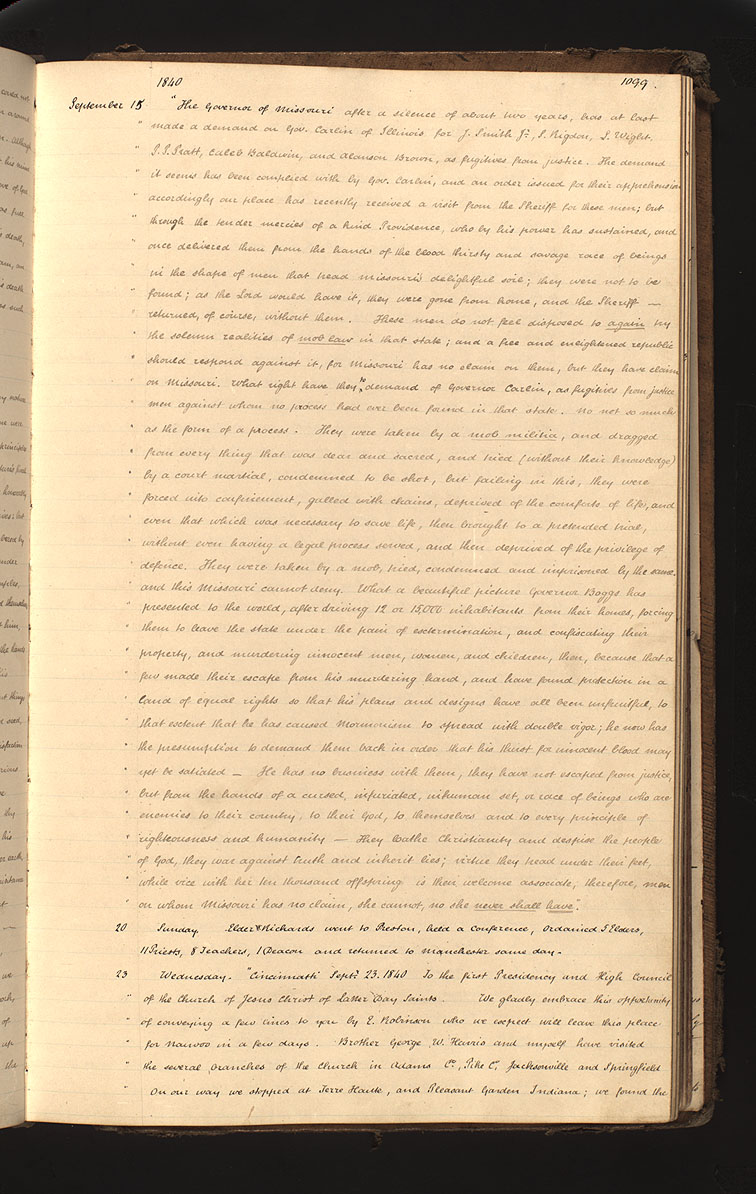 1840
1099.
September 15 "The Governor of Missouri after a silence of about two years, has at last
" made a demand on Gov. Carlin of Illinois for J. Smith Jr., S. Rigdon, L. Wight.
" P. P. Pratt, Caleb Baldwin, and Alanson Brown, as fugitives from justice. The demand
" it seems has been complied with by Gov. Carlin, and an order issued for their apprehension
" accordingly our place has recently received a visit from the Sheriff for these men; but
" through the tender mercies of a kind Providence, who by his power has sustained, and
" once delivered them from the hands of the blood thirsty and savage race of beings
" in the shape of men that tread Missouri's delightful soil; they were not to be
" found; as the Lord would have it, they were gone from home, and the Sheriff —
" returned, of course, without them. These men do not feel disposed to again try
" the solemn realities of mob law in that state; and a free and enlightened republic
" should respond against it, for Missouri has no claim on them, but they have claim
" on Missouri. What right have they to demand of Governor Carlin, as fugitives from justice
" men against whom no process had ever been found in that state. No not so much
" as the form of a process. They were taken by a mob militia, and dragged
" from every thing that was dear and sacred, and tried (without their knowledge)
" by a court martial, condemned to be shot, but failing in this, they were
" forced into confinement, galled with chains, deprived of the comforts of life, and
" even that which was necessary to save life, then brought to a pretended trial,
" without even having a legal process served, and then deprived of the privilege of
" defence. They were taken by a mob, tried, condemned and imprisoned by the same.
" and this Missouri cannot deny. What a beautiful picture Governor Boggs has
" presented to the world, after driving 12 or 15,000 inhabitants from their homes, forcing
" them to leave the state under the pain of extermination, and confiscating their
" property, and murdering innocent men, women, and children, then, because that a
" few made their escape from his murdering hand, and have found protection in a
" land of equal rights so that his plans and designs have all been unfruitful, to
" that extent that he has caused Mormonism to spread with double vigor; he now has
" the presumption to demand them back in order that his thirst for innocent blood may
" yet be satiated — He has no business with them, they have not escaped from justice,
" but from the hands of a cursed, infuriated, inhuman set, or race of beings who are
" enemies to their country, to their God, to themselves and to every principle of
" righteousness and humanity — They loathe Christianity and despise the people
" of God, they war against truth and inherit lies; virtue they tread under their feet,
" while vice with her ten thousand offspring is their welcome associate, therefore, men
" on whom Missouri has no claim, she cannot, no she never shall have".
20 Sunday. Elder Richards went to Preston, held a Conference, Ordained 5 Elders,
11 Priests, 8 Teachers, 1 Deacon and returned to Manchester same day.
23 Wednesday. "Cincinnatti Septr. 23. 1840 To the first Presidency and High Council
" of the Church of Jesus Christ of Latter Day Saints. We gladly embrace this opportunity
" of conveying a few lines to you by E. Robinson who we expect will leave this place
" for Nauvoo in a few days. Brother George W. Harris and myself have visited
" the several branches of the Church in Adams Co., Pike Co, Jacksonville and Springfield
" On our way we stopped at Terre Haute, and Pleasant Garden Indiana; we found the